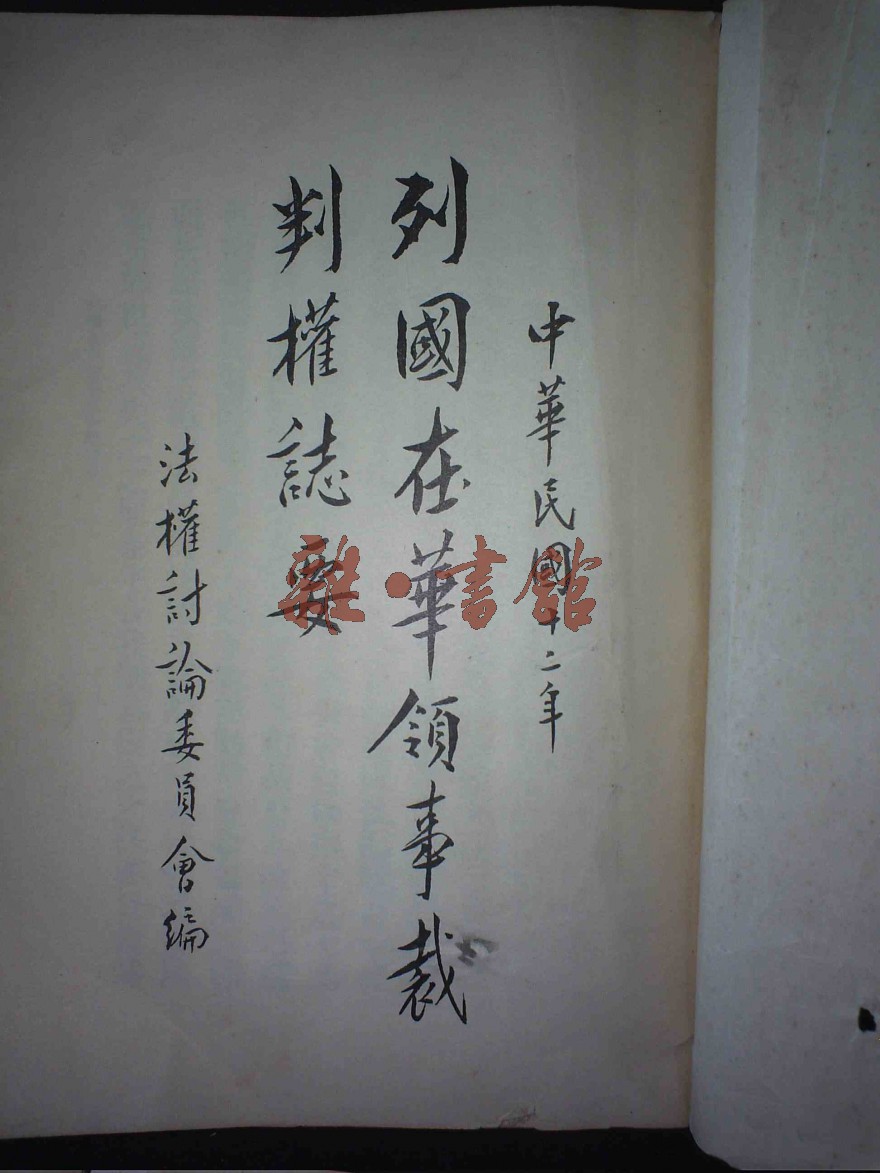 中華民國十二年
列國在華領事裁
判權誌要
法權討論委員會編
雜·書館